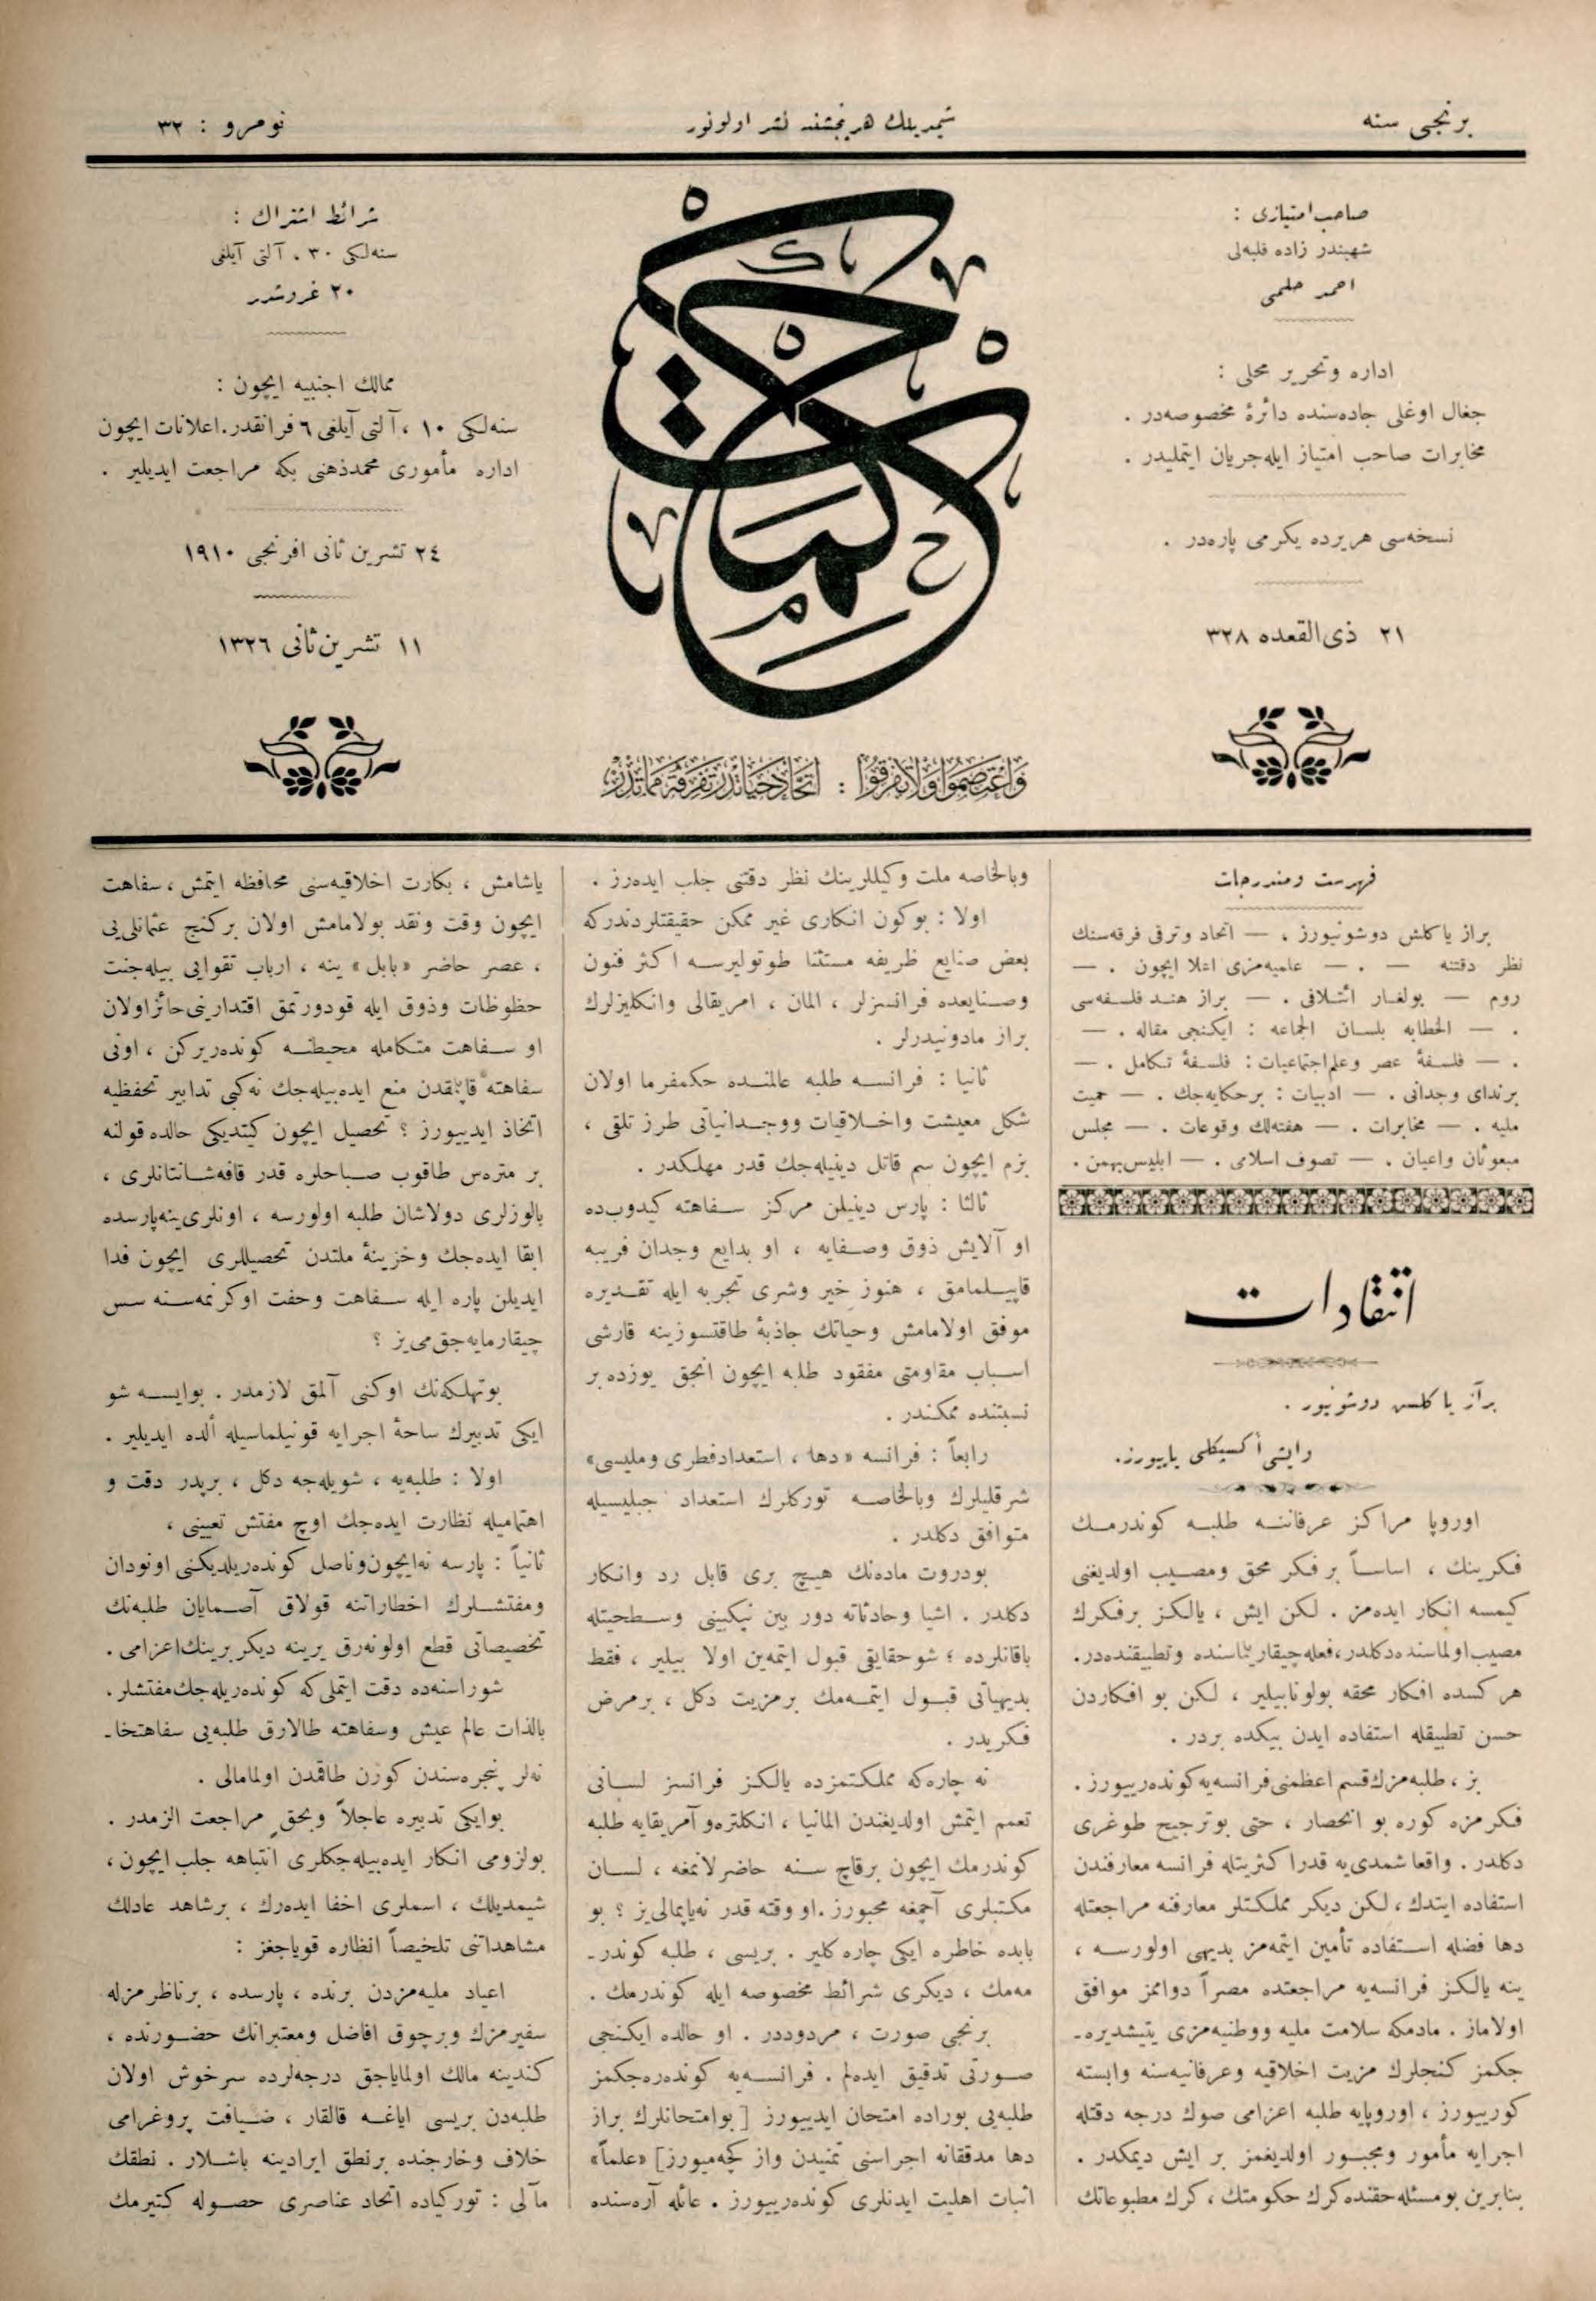 برنجی سنه
شیمدیلك هر پنجشنبه نشر اولونور
نومرو : ٣٢
صاحب امتیازی :
شهبندر زاده فلبه‌لی
احمد حلمی
اداره وتحریر محلی :
جغال اوغلی جاده‌سنده دائرهٔ مخصوصه‌در .
مخابرات صاحب امتیاز ایله جریان ایتملیدر .
نسخه‌سی هریرده یکرمی پاره‌در .
٢١ ذی القعده ٣٢٨
حكمت
واعتصموا ولا تفرقوا : اتحاد حیاتدر تفرقه مماتدر
شرائط اشتراك :
سنه‌لکی ٣٠ ، آلتی آیلغی
٢٠ غروشدر
ممالك اجنبیه ایچون :
سنه‌لکی ١٠ ، آلتی آیلغی ٦ فرانقدر. اعلانات ایچون
اداره مأموری محمدذهنی بکه مراجعت ایدیلیر .
٢٤ تشرین ثانی افرنجی ١٩١٠
١١ تشرین ثانی ١٣٢٦
فهرست ومندرجات
براز یاکلش دوشونیورز . — اتحاد وترقی فرقه‌سنك
نظر دقتنه — . — علمیه‌مزی اعلا ایچون . —
روم — بولغار ائتلافی . — براز هند فلسفه‌سی
. — الخطابه بلسان الجماعه : ایکنجی مقاله . —
. — فلسفهٔ عصر وعلم اجتماعیات : فلسفهٔ تکامل . —
برندای وجدانی . — ادبیات : برحکایه‌جك . — حمیت
ملیه . — مخابرات . — هفته‌لك وقوعات . — مجلس
مبعوثان واعیان . — تصوف اسلامی . — ابلیس بهمن .
انتقادات
برآز یاکلش دوشونیور .
رایشی اکسیکلی یاپیورز.
اوروپا مراکز عرفاننه طلبه کوندرمك
فکرینك ، اساساً برفکر محق ومصیب اولدیغنی
کیمسه انکار ایده‌مز . لکن ایش ، یالکز برفکرك
مصیب اولماسنده دکلدر، فعله چیقاریلماسنده وتطبیقنده‌در.
هرکسده افکار محقه بولونابیلیر ، لکن بو افکاردن
حسن تطبیقله استفاده ایدن بیکده بردر .
بز ، طلبه‌مزك قسم اعظمنی فرانسه‌یه کونده‌رییورز.
فکرمزه کوره بو انحصار ، حتی بوترجیح طوغری
دکلدر . واقعا شمدی‌یه قدر اکثریتله فرانسه معارفندن
استفاده ایتدك ، لکن دیکر مملکتلر معارفنه مراجعتله
دها فضله استفاده تأمین ایتمه‌مز بدیهی اولورسه ،
ینه یالکز فرانسه‌یه مراجعتده مصراً دوامز موافق
اولاماز . مادمکه سلامت ملیه ووطنیه‌مزی یتیشدیره‌ـ
جکمز کنجلرك مزیت اخلاقیه وعرفانیه‌سنه وابسته
کورییورز ، اوروپایه طلبه اعزامی صوك درجه دقتله
اجرایه مأمور ومجبور اولدیغمز بر ایش دیمکدر .
بنابرین بومسئله حقنده کرك حکومتك ، کرك مطبوعاتك
وبالخاصه ملت وکیللرینك نظر دقتنی جلب ایده‌رز .
اولا : بوکون انکاری غیر ممکن حقیقتلردندرکه
بعض صنایع ظریفه مستثنا طوتولیرسه اکثر فنون
وصنایعده فرانسزلر ، المان ، امریقالی وانکلیزلرك
براز مادونیدرلر .
ثانیا : فرانسه طلبه عالمنده حکمفرما اولان
شکل معیشت واخلاقیات ووجدانیاتی طرز تلقی ،
بزم ایچون سم قاتل دینیله‌جك قدر مهلکدر .
ثالثا : پارس دینیلن مرکز سفاهته کیدوب‌ده
او آلایش ذوق وصفایه ، او بدایع وجدان فریبه
قاپیلمامق ، هنوز خیر وشری تجربه ایله تقدیره
موفق اولامامش وحیاتك جاذبهٔ طاقتسوزینه قارشی
اسباب مقاومتی مفقود طلبه ایچون انجق یوزده بر
نسبتنده ممکندر .
رابعاً : فرانسه «دها ، استعدادفطری وملیسی»
شرقلیلرك وبالخاصه تورکلرك استعداد جبلیسیله
متوافق دکلدر .
بودروت ماده‌نك هیچ بری قابل رد وانکار
دکلدر . اشیا وحادثاته دور بین نیکبینی وسطحیتله
باقانلرده ؛ شوحقایقی قبول ایتمه‌ین اولا بیلیر ، فقط
بدیهیاتی قبول ایتمه‌مك برمزیت دکل ، برمرض
فکریدر .
نه چاره‌که مملکتمزده یالکز فرانسز لسانی
تعمم ایتمش اولدیغندن المانیا ، انکلتره‌و آمریقایه طلبه
کوندرمك ایچون برقاچ سنه حاضرلانمغه ، لسان
مکتبلری آچمغه مجبورز .او وقته قدر نه‌یاپمالی‌یز ؟ بو
بابده خاطره ایکی چاره کلیر . بریسی ، طلبه کوندرـ
مه‌مك ، دیکری شرائط مخصوصه ایله کوندرمك .
برنجی صورت ، مردوددر . او حالده ایکنجی
صورتی تدقیق ایده‌لم . فرانسه‌یه کونده‌ره‌جکمز
طلبه‌یی بوراده امتحان ایدییورز [ بوامتحانلرك براز
دها مدققانه اجراسنی تمنیدن واز کچه‌میورز] «علماً»
اثبات اهلیت ایدنلری کونده‌رییورز . عائله آره‌سنده
یاشامش ، بکارت اخلاقیه‌سنی محافظه ایتمش ، سفاهت
ایچون وقت ونقد بولامامش اولان برکنج عثمانلی‌یی
، عصر حاضر «بابل» ینه ، ارباب تقوایی بیله‌جنت
حظوظات وذوق ایله قودورتمق اقتدارینی‌حائزاولان
او سفاهت متکامله محیطنه کونده‌ریرکن ، اونی
سفاهته قاپیلمقدن منع ایده‌بیله‌جك نه‌کبی تدابیر تحفظیه
اتخاذ ایدییورز ؟ تحصیل ایچون کیتدیکی حالده قولنه
بر متره‌س طاقوب صباحلره قدر قافه‌شانتانلری ،
بالوزلری دولاشان طلبه اولورسه ، اونلری‌ینه‌پارسده
ابقا ایده‌جك وخزینهٔ ملتدن تحصیللری ایچون فدا
ایدیلن پاره ایله سفاهت وخفت اوکرنمه‌سنه سس
چیقارمایه‌جق‌می‌یز ؟
بوتهلکه‌نك اوکنی آلمق لازمدر . بوایسه شو
ایکی تدبیرك ساحهٔ اجرایه قونیلماسیله الده ایدیلیر .
اولا : طلبه‌یه ، شویله‌جه دکل ، برپدر دقت و
اهتمامیله نظارت ایده‌جك اوچ مفتش تعیینی ،
ثانیاً : پارسه نه‌ایچون‌وناصل کونده‌ریلدیکنی اونودان
ومفتشلرك اخطاراتنه قولاق آصمایان طلبه‌نك
تخصیصاتی قطع اولونه‌رق یرینه دیکر برینك‌اعزامی .
شوراسنه‌ده دقت ایتملی‌که کونده‌ریله‌جك‌مفتشلر،
بالذات عالم عیش وسفاهته طالارق طلبه‌یی سفاهتخاـ
نه‌لر پنجره‌سندن کوزن طاقمدن اولمامالی .
بوایکی تدبیره عاجلاً وبحق مراجعت الزمدر .
بولزومی انکار ایده‌بیله‌جکلری انتباهه جلب ایچون ،
شیمدیلك ، اسملری اخفا ایده‌رك ، برشاهد عادلك
مشاهداتنی تلخیصاً انظاره قویاجغز :
اعیاد ملیه‌مزدن برنده ، پارسده ، برناظرمزله
سفیرمزك وبرچوق افاضل ومعتبرانك حضورنده ،
کندینه مالك اولمایاجق درجه‌لرده سرخوش اولان
طلبه‌دن بریسی ایاغه قالقار ، ضیافت پروغرامی
خلاف وخارجنده برنطق ایرادینه باشلار . نطقك
مآلی : تورکیاده اتحاد عناصری حصوله کتیرمك